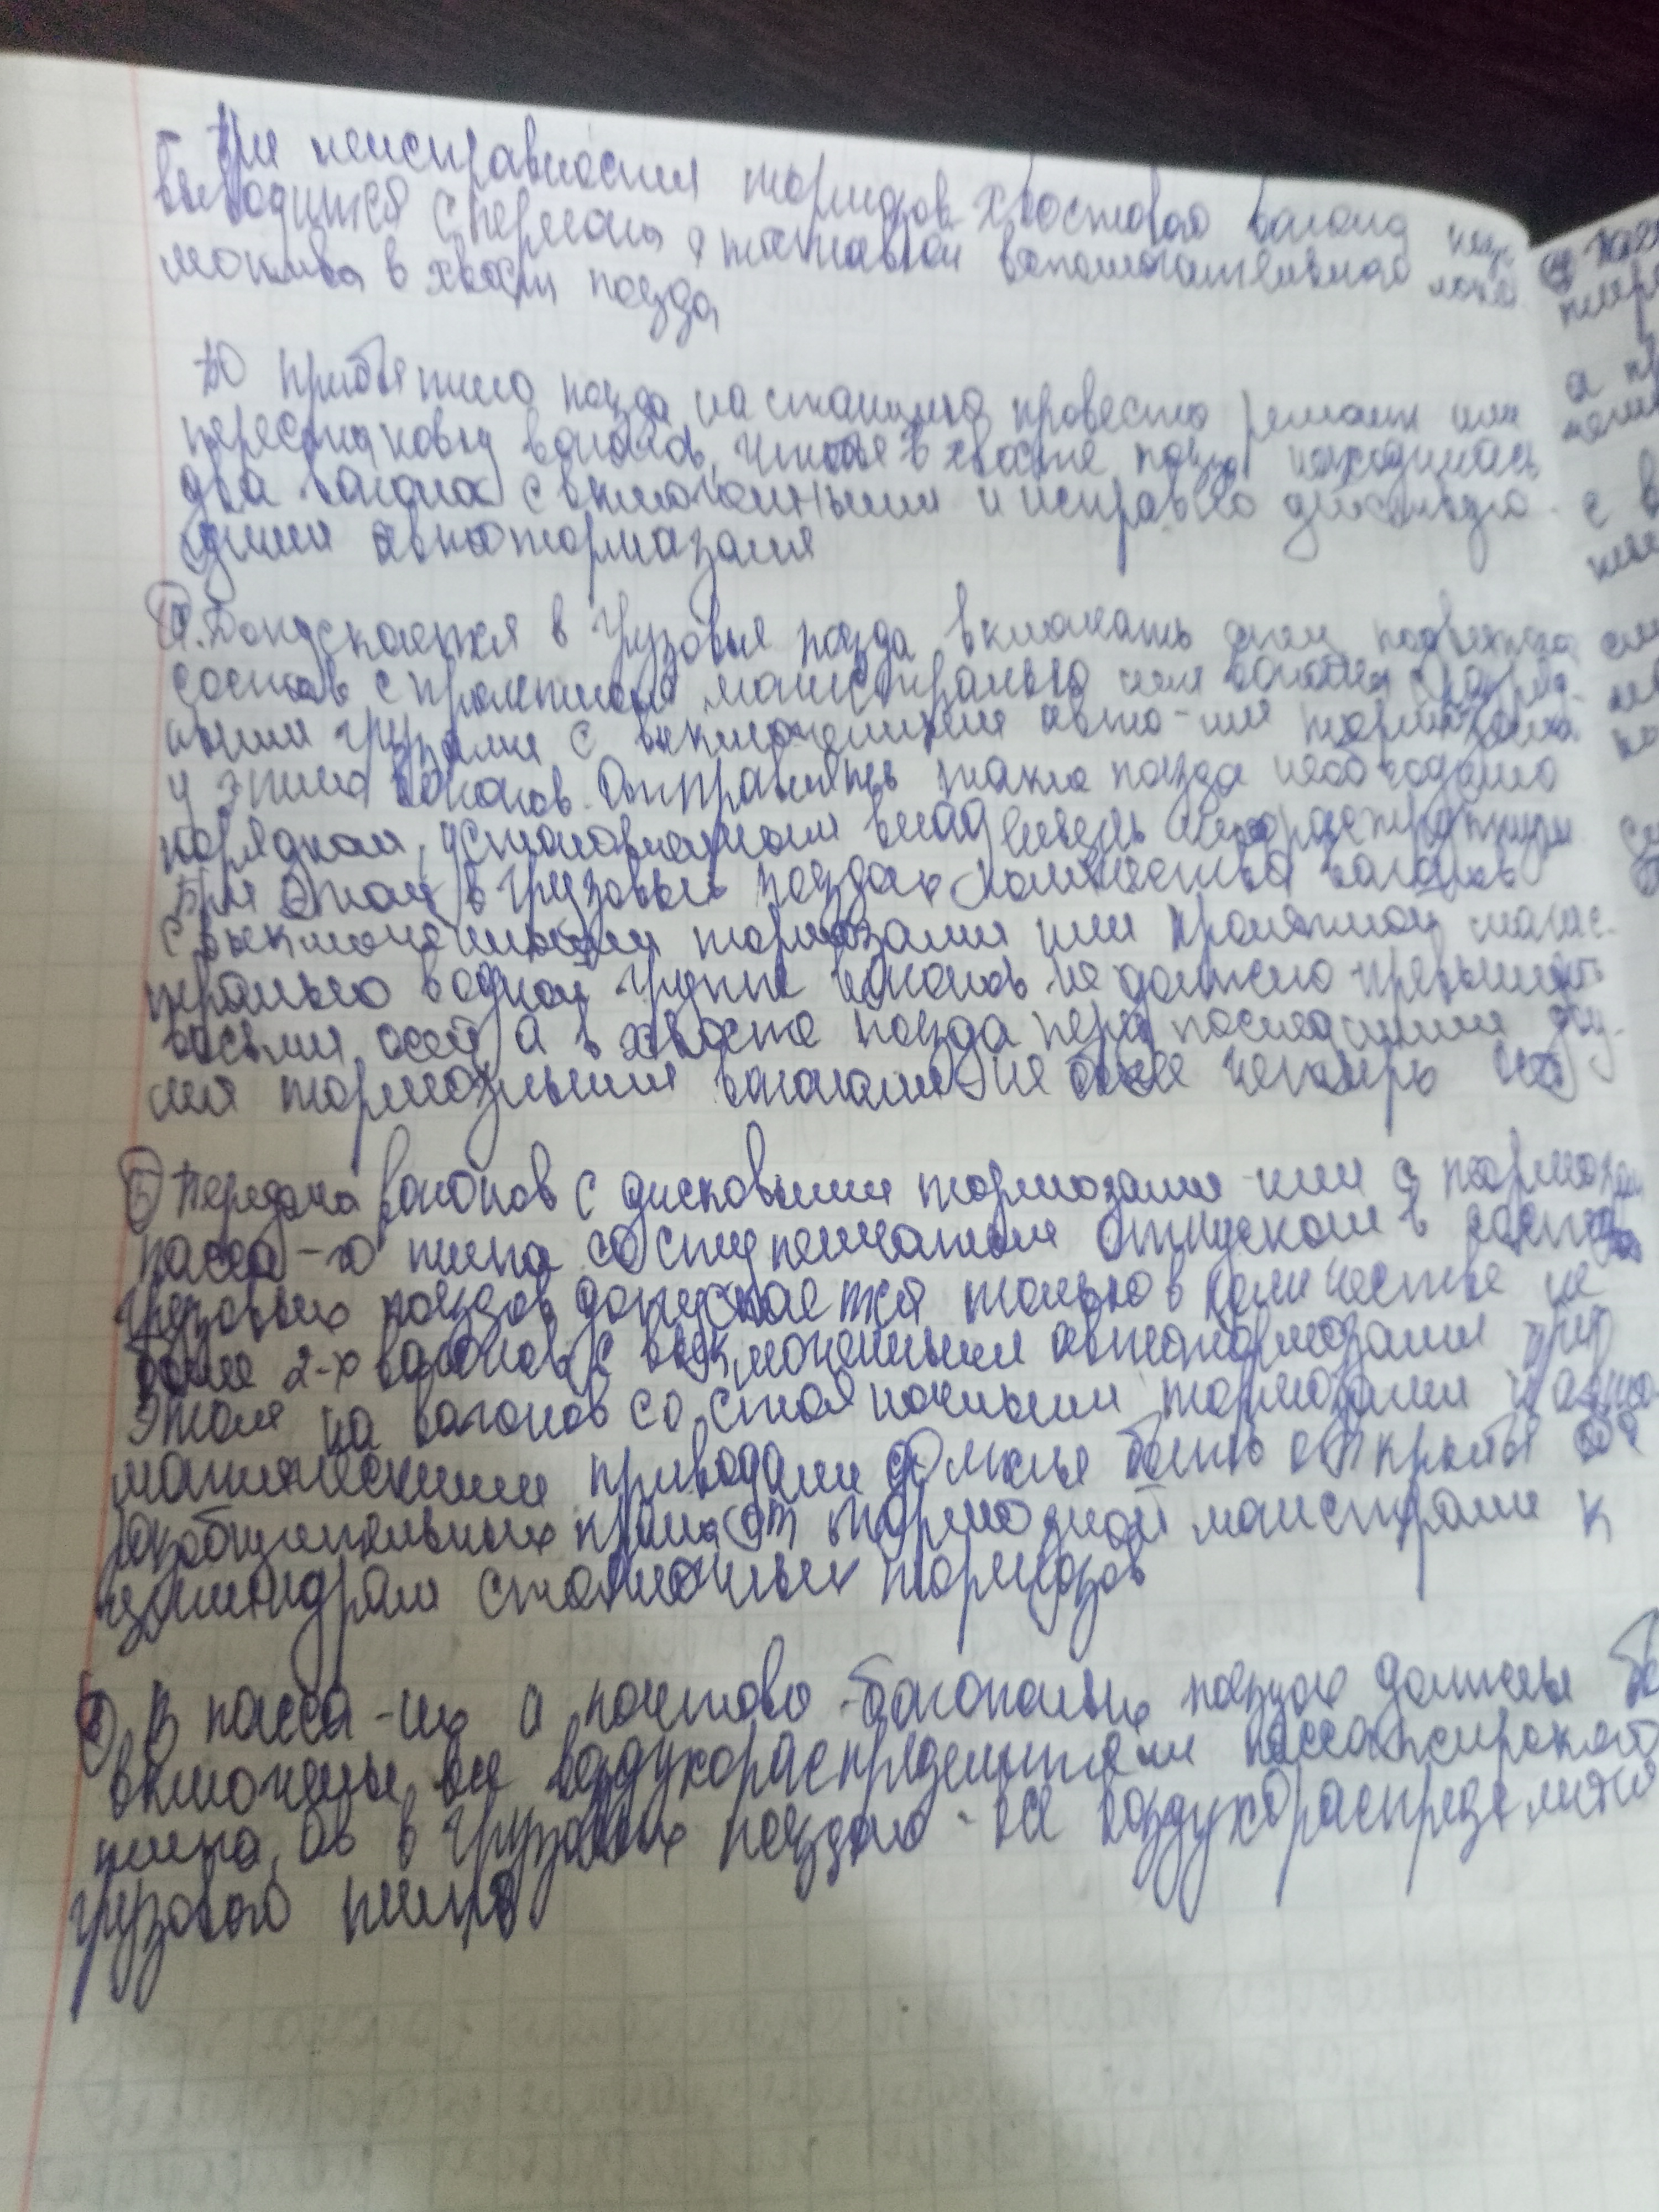 При неисправности тормозов хвостового вагона поезд
выводится с перегона с постановкой вспомогательного локо
мотива в хвост поезда
По прибытию поезда на станцию провести ремонт или
перестановку вагонов, чтобы в хвосте поезда находились
два вагона с включенными и исправно действую
щими автотормозами
4. Допускается в грузовые поезда включать подвижной
состав с пролетной магистралью или вагоны с
грузами с выключением авто-ми
у этих вагонов. Отправлять такие поезда необходимо
порядком, установленным владельцем инфраструктуры
При этом в грузовых поездах количество вагонов
с выключенными тормозами или пролетной магис-
тралью в одной группе вагонов не должно превышать
восьми осей а в хвосте поезда перед последними дву-
мя тормозными вагонами не более четырех
5 Передача вагонов с дисковыми тормозами или с тормозами
пасса-го типа со ступенчатым отпуском в составах
грузовых поездов допускается только в количестве не
более 2-х вагонов с выключенными автотормозами при
этом на вагонов со стояночными тормозами и авто
матическими приводами должны быть открыты оба
разобщительных крана от тормозной магистрали к
цилиндрам стояночных тормозов
В пасса-их и почтово-багажных поездах должны бы
включены все воздухораспределители пассажирского
типа, а в грузовых поездах - все воздухораспределители
грузового типа